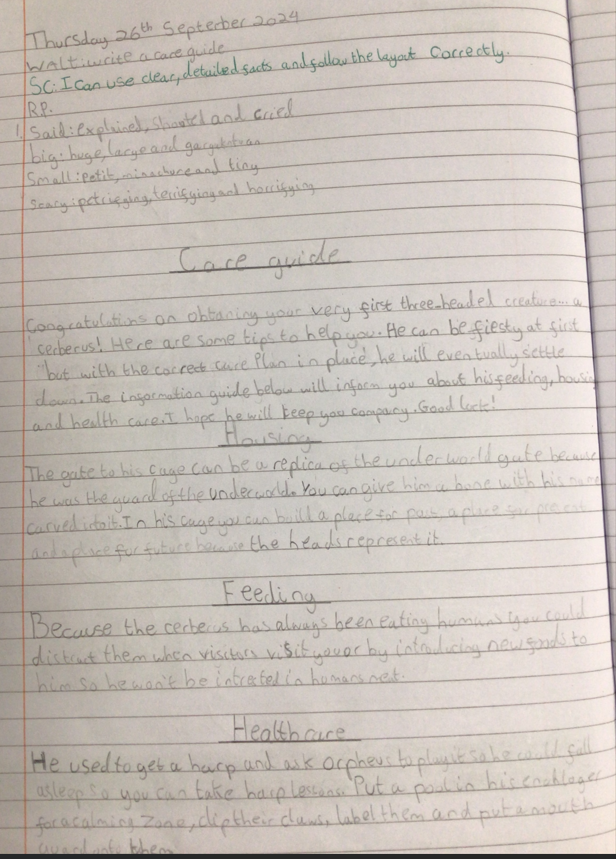 Thursday 26th Septerber 2024
WALT: write a care guide
SC: I Can use clear, detailed facts and follow the layout Correctly.
RP.
1. Said: explained, shouted and cried
big: huge, large and
Small: petit, and tiny
Scary: petrifying, terrifying and horrifying
Care guide
Congratulations on obtaining your very first three-headed creature... a
cerberus! Here are some tips to help you. He can be fiesty at first
but with the correct care Plan in place, he will eventually settle
down. The information guide below will inform you about his feeding, housing
and health care. I hope he will keep you company. Good luck!
Housing
The gate to his cage can be a replica of the underworld gate because
he was the guard of the underworld. You can give him a bone with his name
carved into it. In his cage you can build a place for past, a place for present
and a place for future because the heads represent it.
Feeding
Because the cerberus has always been eating humans you could
distract them when visitors visit by introducing new foods to
him so he won't be in humans
Healthcare
He used to get a harp and ask orpheus to play it so he could fall
asleep so you can take harp lessons. Put a pool in his
for a calming zone, clip their claws, label them and put a mouth
guard onto them